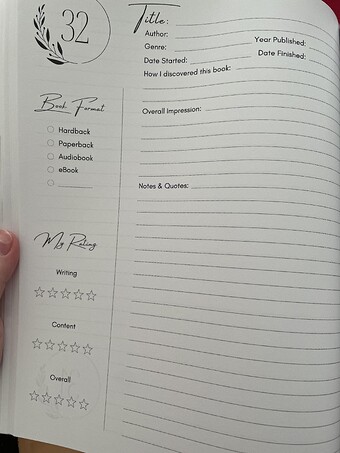 32
Title:
Author:
Year Published:
Genre:
Date Finished:
Date Started:
How I discovered this book:
Book Format
Hardback
Paperback
Audiobook
eBook
Overall Impression:
Notes & Quotes:
My Rating
Writing
Content
Overall